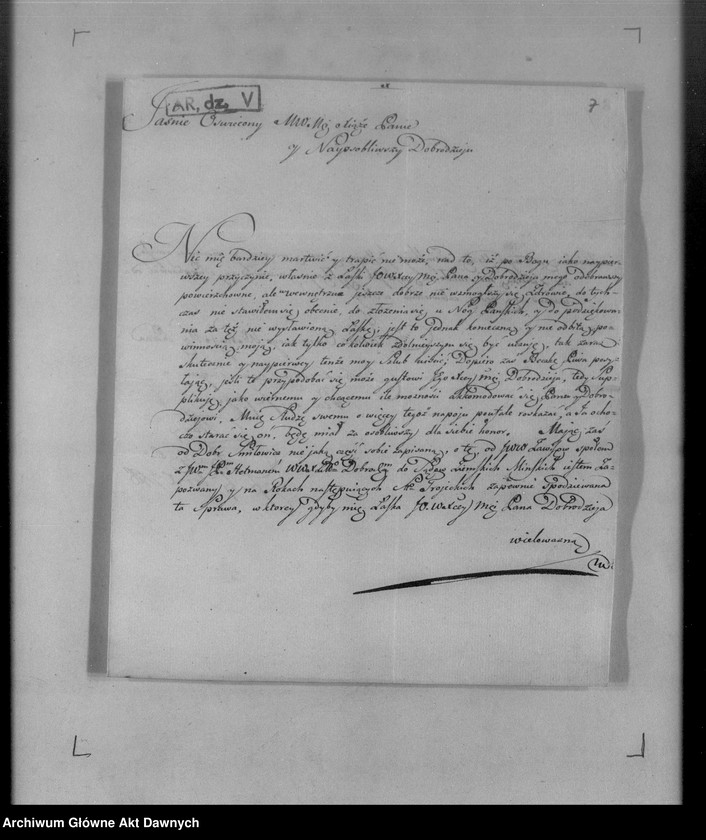 AR, dz. V
7
Jaśnie Oswiecony Mśo. Xiąże Panie
y Nayosobliwszy Dobrodzieju
Nic mię bardziey martwić y trapić nie może, nad to, iż po Bogu iako naypier-
wszey przyczynie, własnie z Łaski JO. WXcey Mći Pana y Dobrodzieja mego odebrawszy
powierzchowne, ale wewnętrznie jeszcze dobrze nie wzmogłszy się Zdrowie, do tych-
czas nie stawiłem się obecnie, do złożenia się u Nóg Pańskich, y do podziękowa-
nia za tęż nie wysławioną Łaskę; jest to jednak konieczną y nie odbitą po-
winnością moją, iak tylko cokolwiek zdolnieyszym się być uznaję, tak zaraz
skutecznie y naypierwey tenże moy szlub ; Dopiero zaś Beczkę Piwa posy-
łając, jeśli to przypodobać się może gustowi Jego Xcey Mći Dobrodzieja, tedy Sup-
plikuję, jako wiernemu y chcącemu ile możności akkomodować się Panu y Dobro-
dziejowi, Mnie Słudze swemu o więcey tegoż napoju poufale roskazać, a Ja ocho-
czo starać się oń, będę miał za osobliwszy dla siebie honor. Mając zaś
od Dobr Smiłowicz nie jaką część sobie zapisaną, o tę, od JWW Zawiszow społem
z JWm Pm Hetmanem Dobrodm do Sądow Ziemskich Mińskich iestem Za-
pozwany y na Rokach następujących Trojeckich zapewnie spodziewana
ta Sprawa, w ktorey gdyby mię Łaska JO. WXcey Mći Pana Dobrodzieja
wielowazna